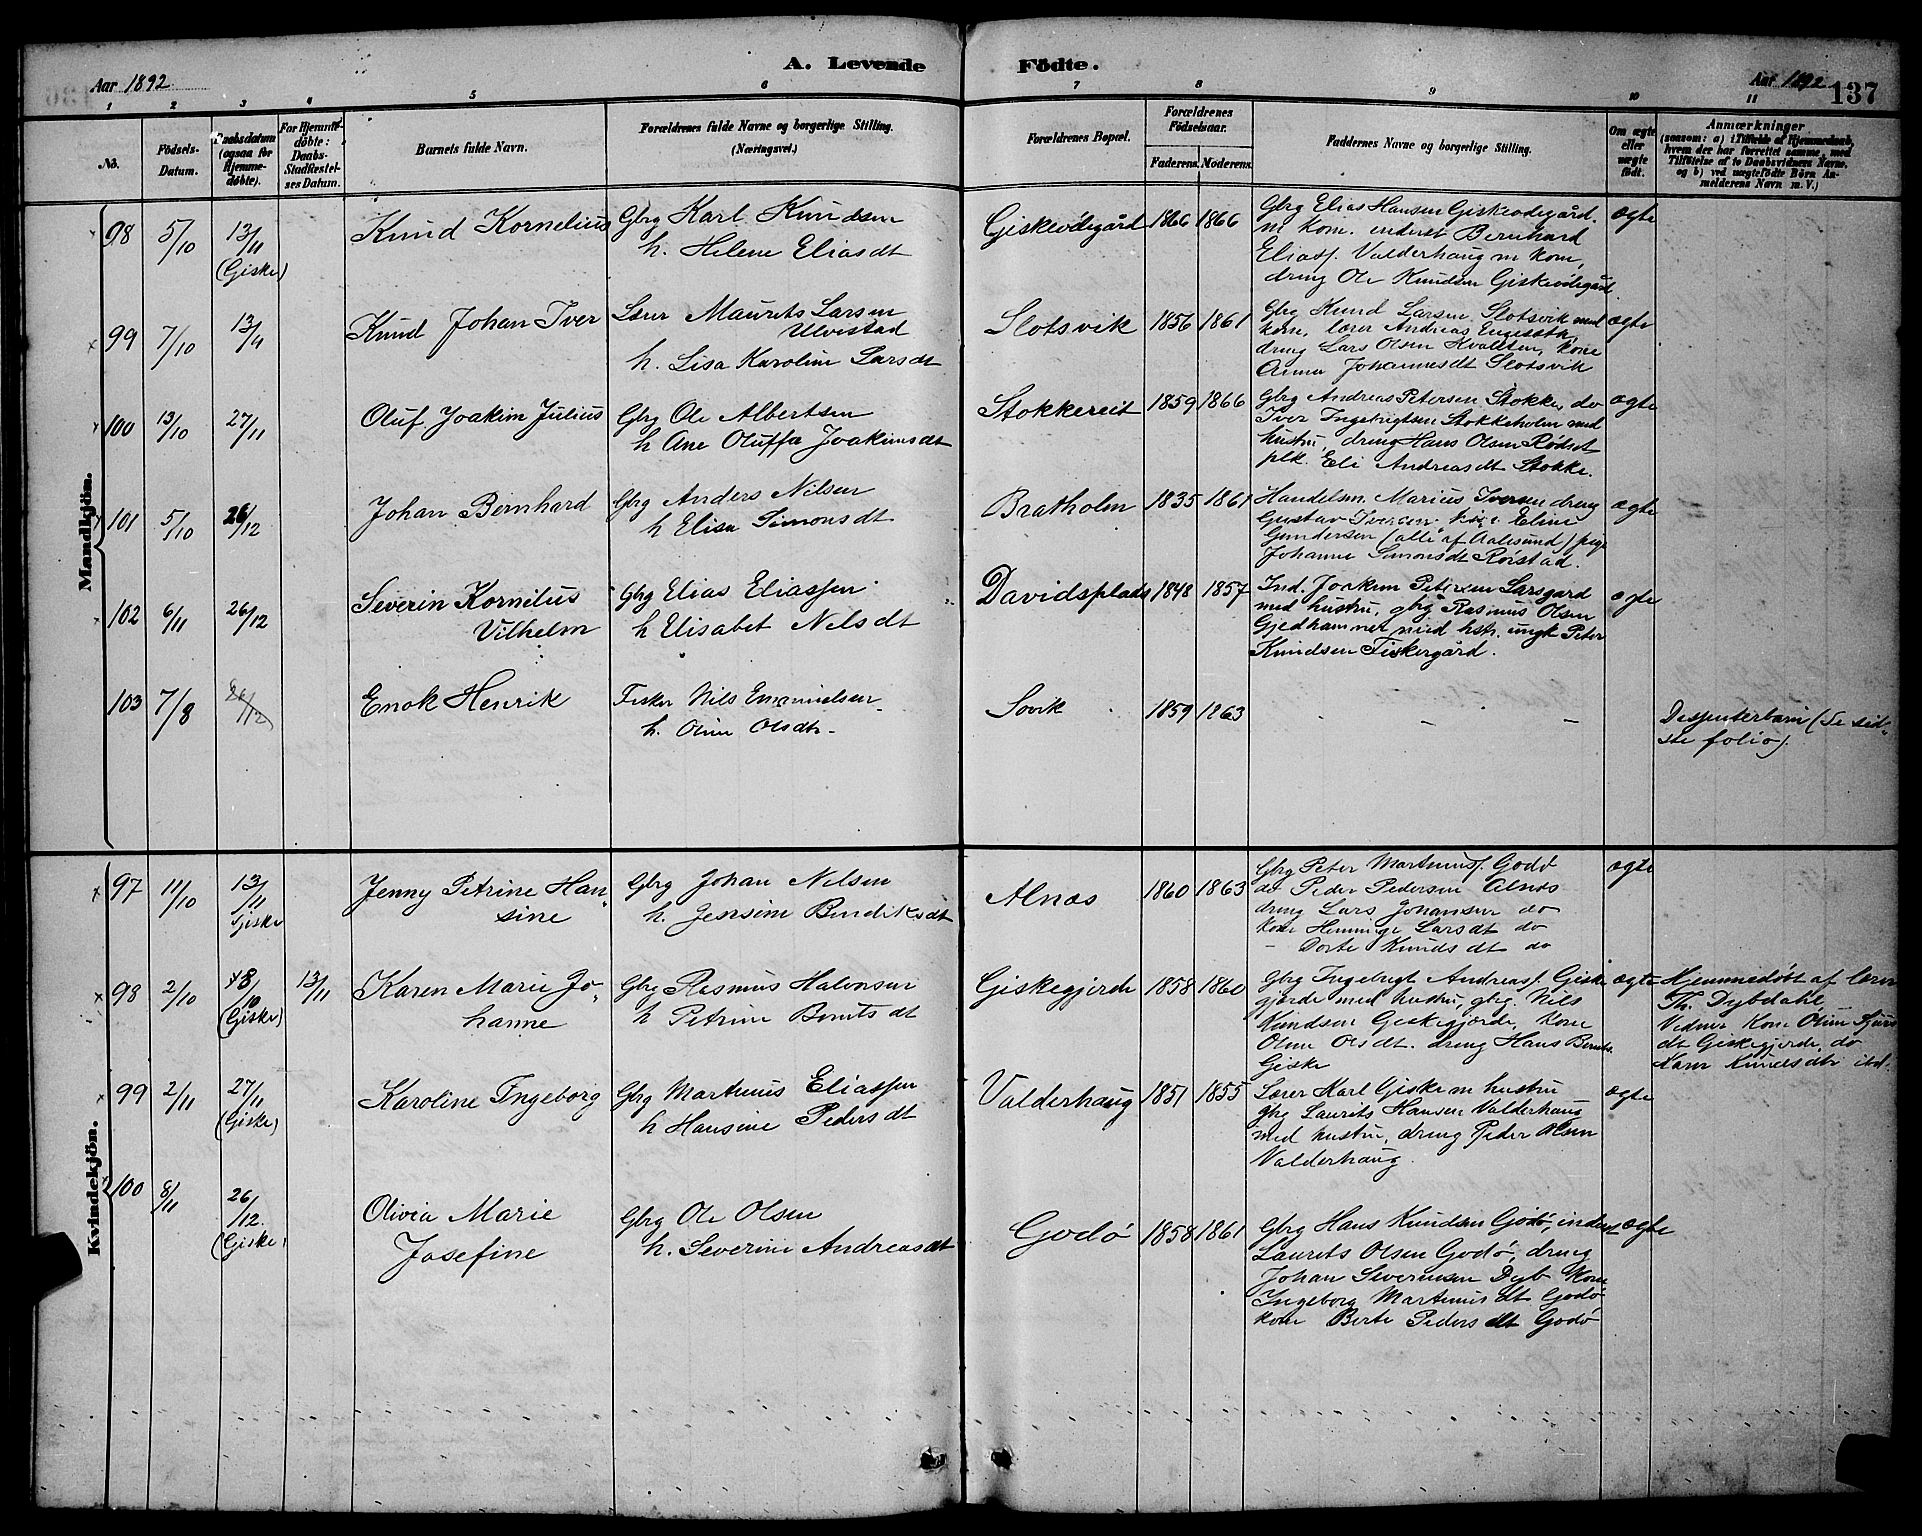 Aar 1892
A. Levende Födte.
Aar 1892
137
1 2 3 4 5 6 7 8 9 10 11
No.
Födsels-Datum.
Daabsdatum (ogsaa for Hjemme-döbte).
For Hjemme-döbte: Daabs-Stadfæstel-ses Datum.
Barnets fulde Navn.
Forældrenes fulde Navne og borgerlige Stilling. (Næringsvei.)
Forældrenes Bopæl.
Forældrenes Födselsaar.
Faderens. Moderens.
Faddernes Navne og borgerlige Stilling.
Om ægte eller uægte födt.
Anmærkninger
(saasom: a) i Tilfælde af Hjemmedaab, hvem der har forrettet samme, med Tilföielse af to Daabsvidners Navne. og b) ved uægtefödte Börn Anmelderens Navn m. V.)
Mandkjön.
98 5/10 13/11 (Giske) Knud Kornelius Gbrg Karl Knudsen h. Helene Eliasdt Giskeødegård 1866 1866 Gbrg Elias Hansen Giskeødegård m kone. inderst Bernhard Eliass. Valderhaug m kone, dreng Ole Knudsen Giskeødegård. ægte
99 7/10 13/11 Knud Johan Iver Lærer Maurits Larsen Ulvestad h. Lisa Karoline Larsdt Slotsvik 1856 1861 Gbrg Knud Larsen Slotsvik med kone, lærer Andreas Engeseth, dreng Lars Olsen, kone Anna Johannesdt Slotsvik ægte
100 13/10 27/11 Oluf Joakim Julius Gbrg Ole Albertsen h Ane Oluffa Joakimsdt Stokkereit 1859 1866 Gbrg Andreas Petersen Stokke, do Iver Ingebrigtsen Stokkeholm med hustru, dreng Hans Olsen Rødset plk. Eli Andreasdt Stokke. ægte
101 5/10 26/12 Johan Bernhard Gbrg Anders Nilsen h Elisa Simonsdt Bratholm 1835 1861 Handelsm. Marius Iversen dreng Gustav Iversen, kone Eline Gundersen (alle af Aalesund) pige Johanne Simonsdt Rørstad. ægte
102 6/11 26/12 Severin Kornelius Vilhelm Gbrg Elias Eliassen h Elisabet Nilsdt Davidsplads 1848 1857 Ind. Joakim Petersen Larsgard med hustru, gbrg Rasmus Olsen Gjedhammer med hstr. ungk Peter Knudsen Fiskergård. ægte
103 7/8 26/12 Enok Henrik Fisker Nils Emanuelsen h. Oline Olsdtr. Søvik 1859 1863 – – – Dissenterbarn (Se sidste folio).
Kvindekjön.
97 11/10 13/11 Giske Jenny Petrine Hansine Gbrg Johan Nilsen h. Jensine Bendiksdt Alnæs 1860 1863 Gbrg Peter Martinuss. Godø do Peder Pedersen Alnæs dreng Lars Johansen do kone Henninge Larsdt do – Dorte Knudsdt do ægte
98 2/10 18/10 (Giske) 13/11 Karen Marie Johanne Gbrg Rasmus Halvorsen h Petrine Berntsdt Giskegjerde 1858 1860 Gbrg Ingebrigt Andreass. Giskegjerde med hustru, gbrg. Nils Knudsen Giskegjerde, kone Oline Olsdt. dreng Hans Berntss. Giske ægte Hjemmedøbt af lærer Th. Dybdahl Vidner Kone Oline Sjursdt Giskegjerde, do Karen Knudsdtr ibd.
99 2/11 27/11 (Giske) Karoline Ingeborg Gbrg Martinus Eliassen h Hansine Pedersdt Valderhaug 1851 1855 Lærer Karl Giske m hustru gbrg Laurits Hansen Valderhaug med hustru, dreng Peder Olsen Valderhaug. ægte
100 8/11 26/12. (Giske) Olivia Marie Josefine Gbrg Ole Olsen h. Severine Andreasdt Godø 1858 1861 Gbrg Hans Knudsen Godø, inderst Laurits Olsen Godø, dreng Johan Severinsen Dyb kone Ingeborg Martinusdt Godø kone Berte Pedersdt Godø ægte